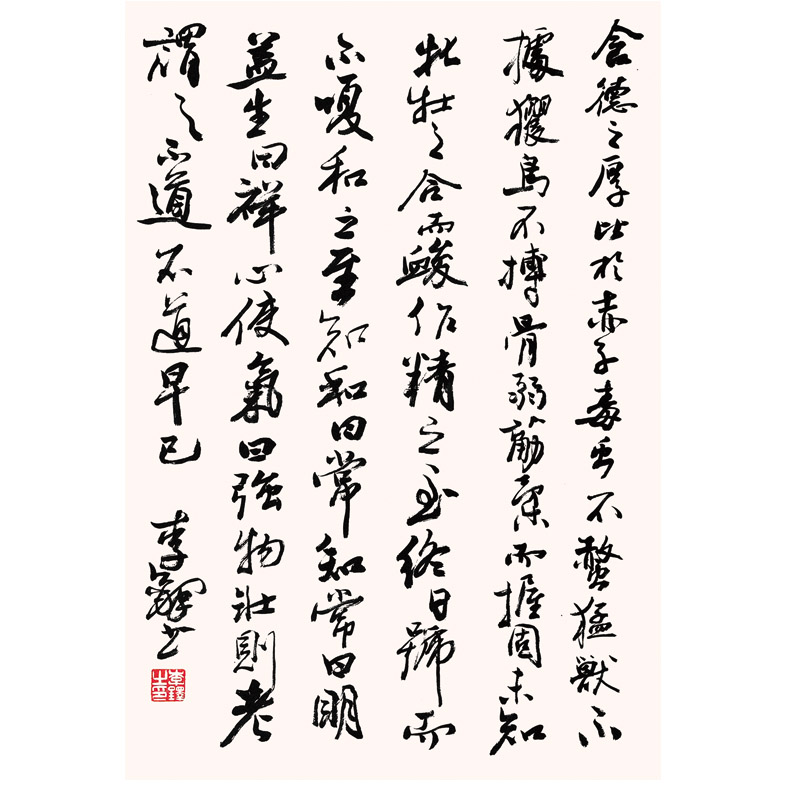 含德之厚比於赤子毒虫不螫猛獸不
據玃鳥不搏骨弱筋柔而握固未知
牝牡之合而䘒作精之至終日號而
不嗄和之至知和曰常知常曰明
益生曰祥心使氣曰強物壯則老
謂之不道不道早已
李鐸書
李鐸之印